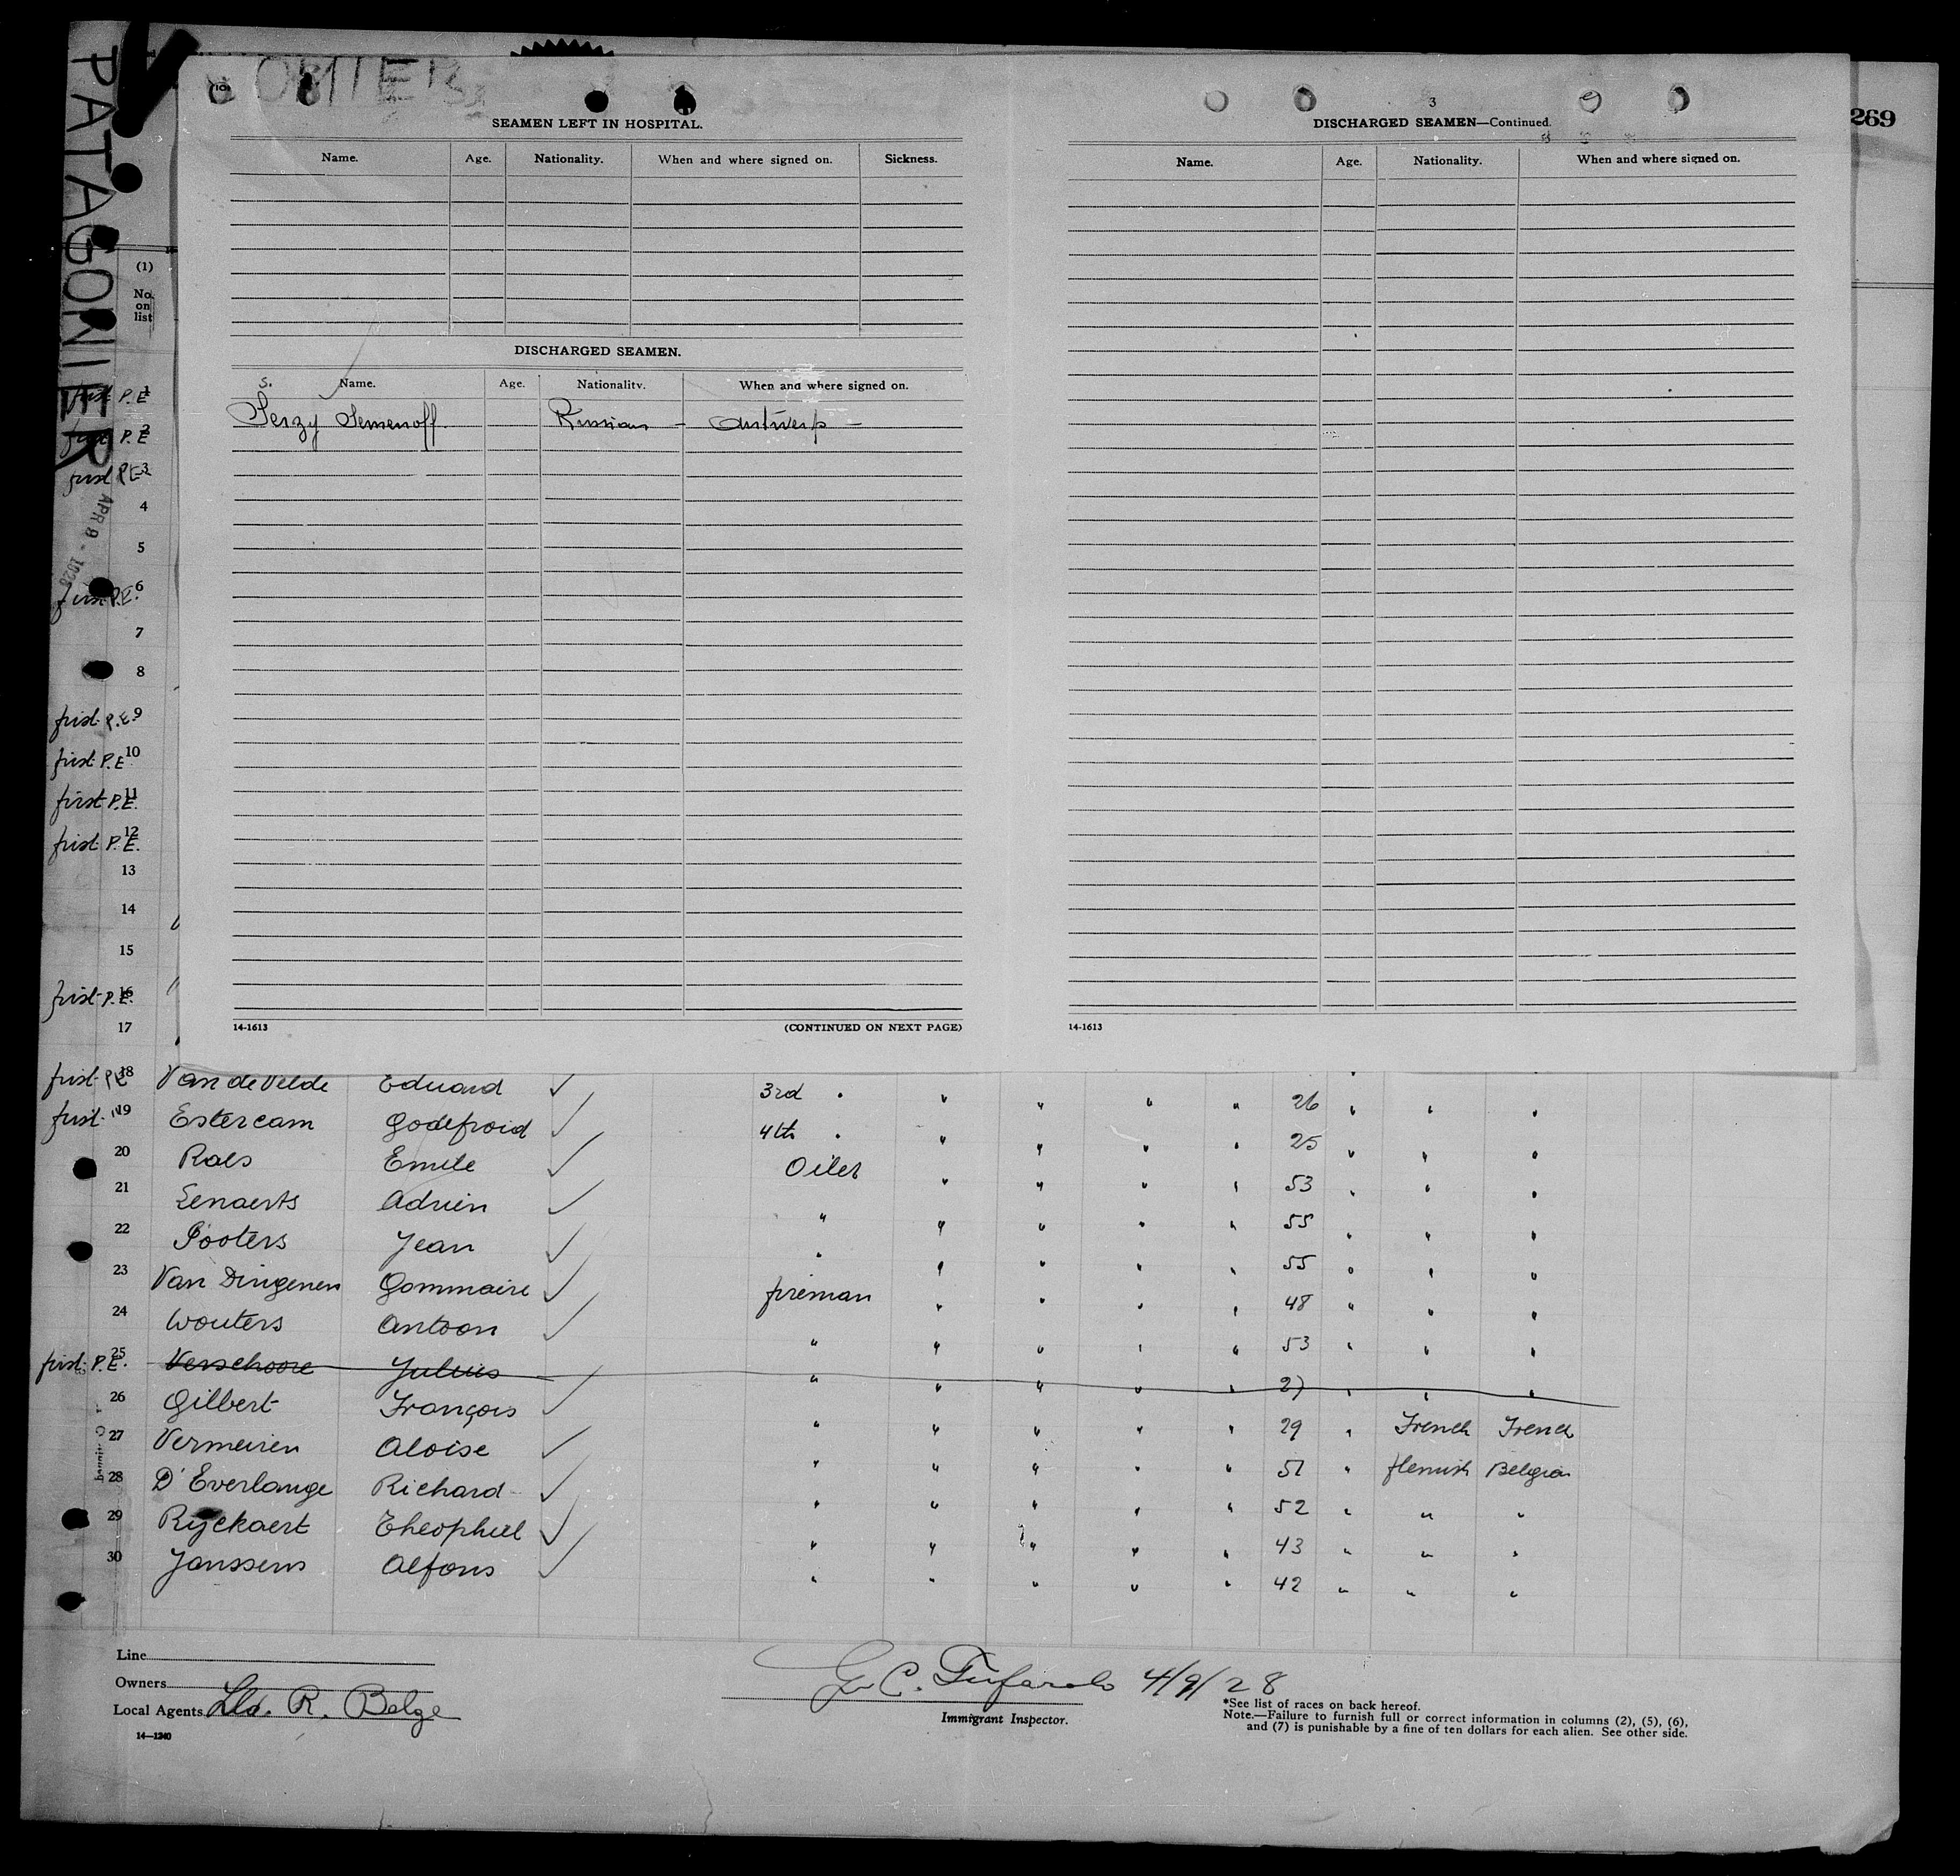 PATAGONIER
269
3
SEAMEN LEFT IN HOSPITAL.
Name. Age. Nationality. When and where signed on. Sickness.
DISCHARGED SEAMEN.
S.
Name. Age. Nationality. When and where signed on.
Serzy Semenoff Russian - Antwerp -
14-1613 (CONTINUED ON NEXT PAGE)
DISCHARGED SEAMEN—Continued.
Name. Age. Nationality. When and where signed on.
14-1613
(1)
No.
on
list
first P.E 1
first P.E 2
first P.E 3
4
APR 9 - 1928
5
first P.E. 6
7
8
first P.E. 9
first P.E 10
first P.E. 11
first P.E. 12
13
14
15
first P.E. 16
17
first P.E 18 Van de Velde Eduard ✓ 3rd " " " " " 26 " " "
first 19 Estercam Godefroid ✓ 4th " " " " " 25 " " "
20 Raes Emile ✓ Oiler " " " " 53 " " "
21 Lenaerts Adrien ✓ " " " " " 55 " " "
22 Pooters Jean ✓ " " " " " 55 " " "
23 Van Dingenen Gommaire ✓ fireman " " " " 48 " " "
24 Wouters Antoon ✓ " " " " " 53 " " "
first P.E. 25 Verschoore Julius " " " " " 27 " " "
26 Gilbert François ✓ " " " " " 29 " French French
27 Vermeiren Aloise ✓ " " " " " 51 " flemish Belgian
28 D'Everlange Richard ✓ " " " " " 52 " " "
29 Ryckaert Theophiel ✓ " " " " " 43 " " "
30 Janssens Alfons ✓ " " " " " 42 " " "
Line
Owners
Local Agents Lld. R. Belge
14—1240
G. C. Tufarolo 4/9/28
Immigrant Inspector.
*See list of races on back hereof.
Note.—Failure to furnish full or correct information in columns (2), (5), (6),
and (7) is punishable by a fine of ten dollars for each alien. See other side.